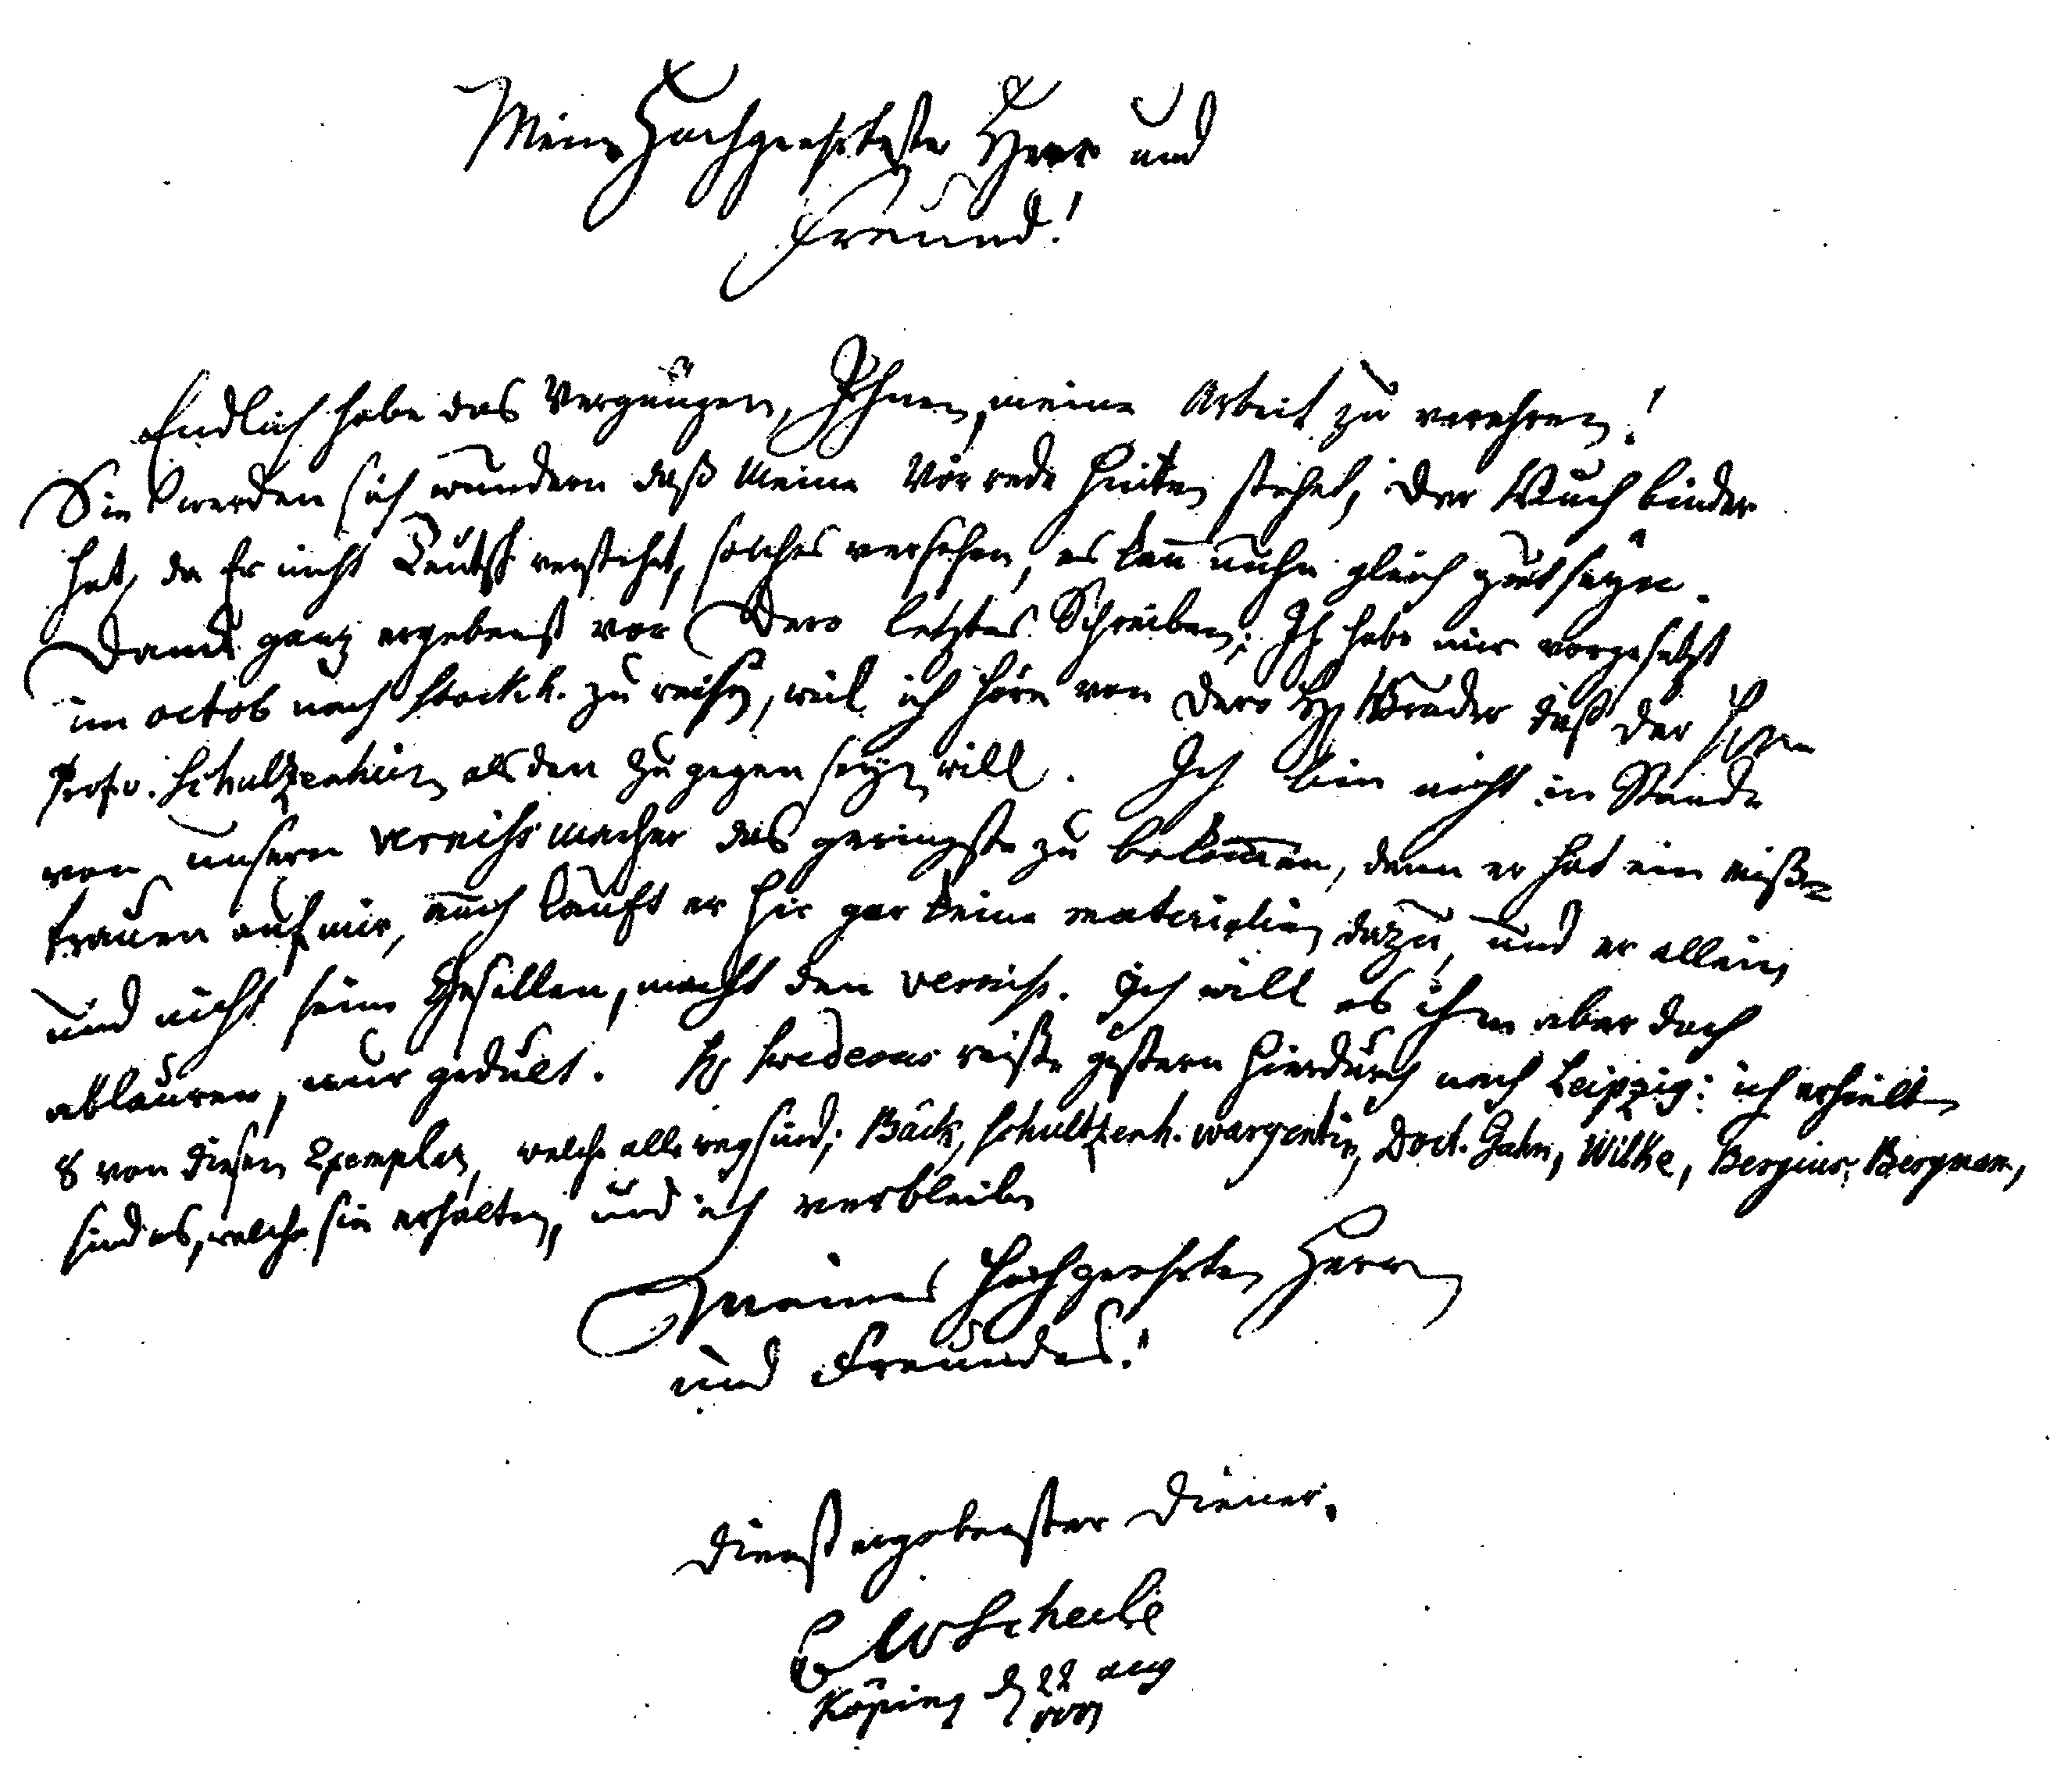 Mein Hochgeehrtester Herr und
Freund!
Endlich habe das Vergnügen, Ihnen, meine Arbeit zu verehren!
Sie werden sich wundern daß meine Vorrede hinten stehet, der Buchbinder
hat, da Er nicht Teutsch verstehet, solches versehen, es kan nuhn gleich gut seyn.
Danck ganz ergebenst vor Dero letztes Schreiben; Ich habe mir vorgesetzt
im octob nach Stockh. zu reisen, weil ich höre von Dero H Bruder daß der Herr
Profr. Schultzenheim alsden zugegen seyn will. Ich bin nicht im Stande
von unsern vernissmacher das geringste zu bekommen, denn er hat ein miß-
trauen auf mir, auch kauft er hir gar keine materialien dazu, und er allein,
und nicht seine Gesellen, macht den verniss. Ich will es ihm aber doch
ablauren, nur gedult. H Swederus reißte gestern hierdurch nach Leipzig: ich erhielt
8 von diesen Exemplar, welche alle weg sind; Bäck, Schultzenh. Wargentin, Doct. Gahn, Wilke, Bergius, Bergman,
sind es, welche sie erhalten, und ich verbleibe
Meines Hochgeehrten Herrn
und Freundes.
Dienstergebenster Diener.
C W Scheele
Köping d 22 aug
1777